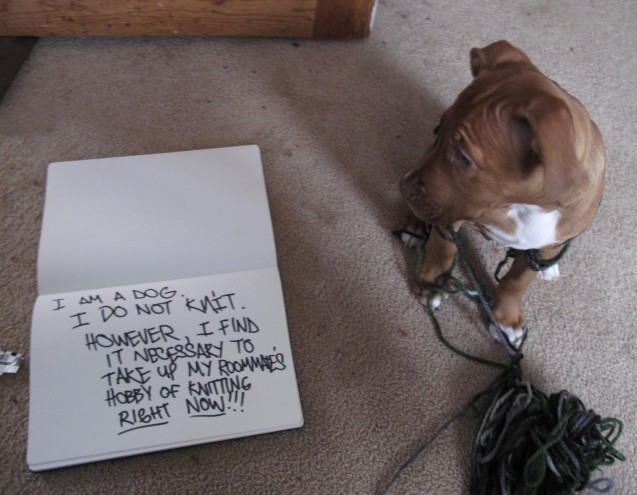 I AM A DOG.
I DO NOT KNIT.
HOWEVER, I FIND
IT NECESSARY TO
TAKE UP MY ROOMMATE'S
HOBBY OF KNITTING
RIGHT NOW!!!